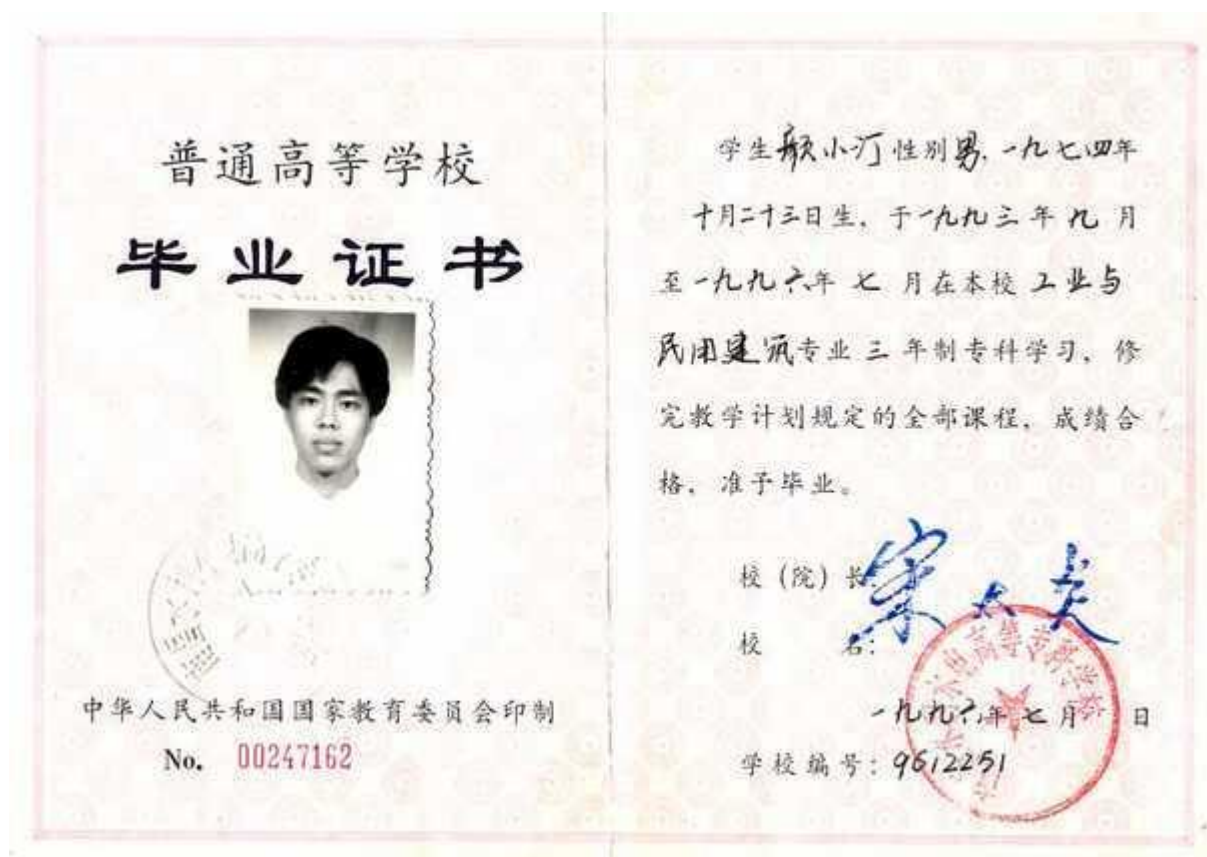 普通高等学校
毕业证书
中华人民共和国国家教育委员会印制
No. 00247162
学生颜小汀性别男,一九七四年
十月二十三日生,于一九九三年九月
至一九九六年七月在本校工业与
民用建筑专业三年制专科学习,修
完教学计划规定的全部课程,成绩合
格,准予毕业。
校(院)长:
校名:
高等专科学校
一九九六年七月 日
学校编号:9612251